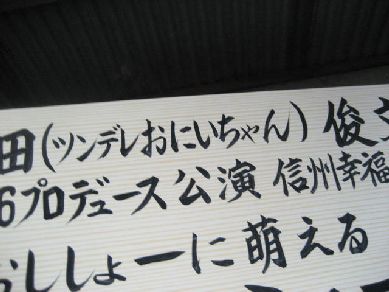 田(ツンデレおにいちゃん)俊
6プロデュース公演 信州幸福
おししょーに萌える